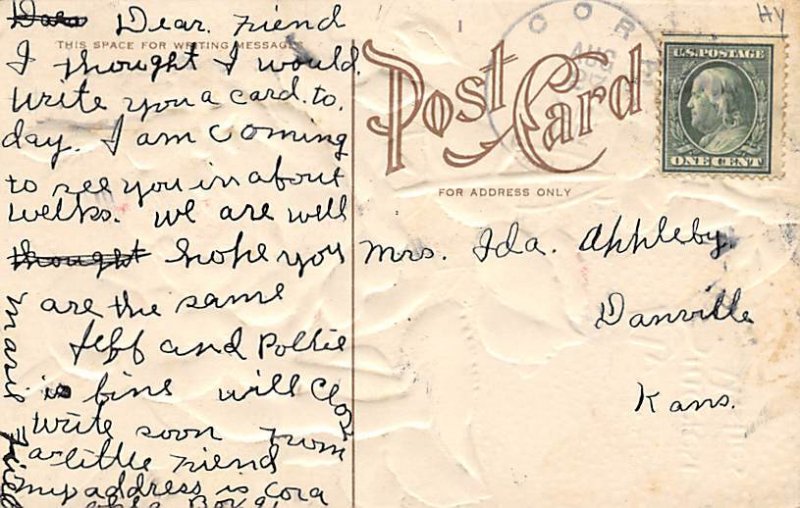 Dear. Friend
THIS SPACE FOR WRITING MESSAGES
I thought I would
write you a card. to.
day. I am coming
to see you in about
welks. we are well
thought hope you
are the same
Jeff and Pollie
is fine will Close
write soon From
a little Friend
my address is Cora
Box 91
Marie
CORA
AUG
Post Card
FOR ADDRESS ONLY
HY
U.S. POSTAGE
ONE CENT
Mrs. Ida. Appleby
Danville
Kans.